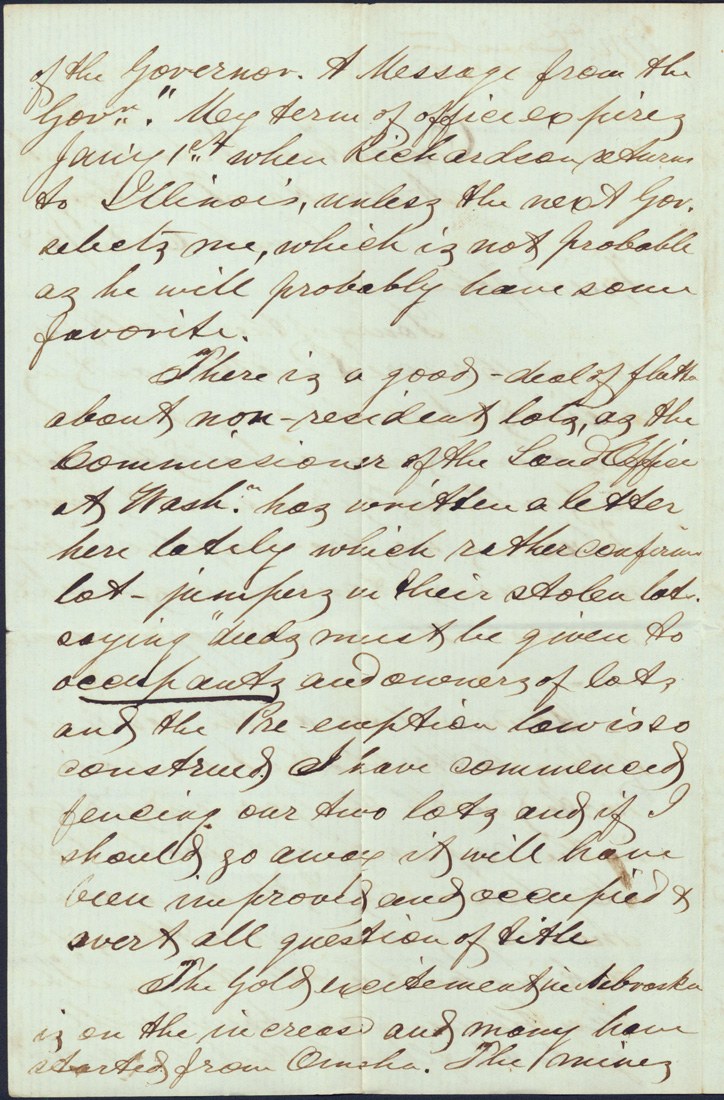 of the Governor. A Message from the
Govr." My term of office expires
Jany 1st when Richardson returns
to Illinois, unless the next Gov.
selects me, which is not probable
as he will probably have some
favorite.
There is a good-deal of
about non-resident lots, as the
Commissioner of the Land Office
at Washn. has written a letter
here lately which rather confirms
lot-jumpers in their stolen lots.
saying "deeds must be given to
occupants and owners of lots
and the Pre-emption law is so
construed. I have commenced
fencing our two lots and if I
should go away it will have
been improved and occupied &
avert all question of title
The Gold excitement in Nebraska
is on the increase and many have
started from Omaha. The mines